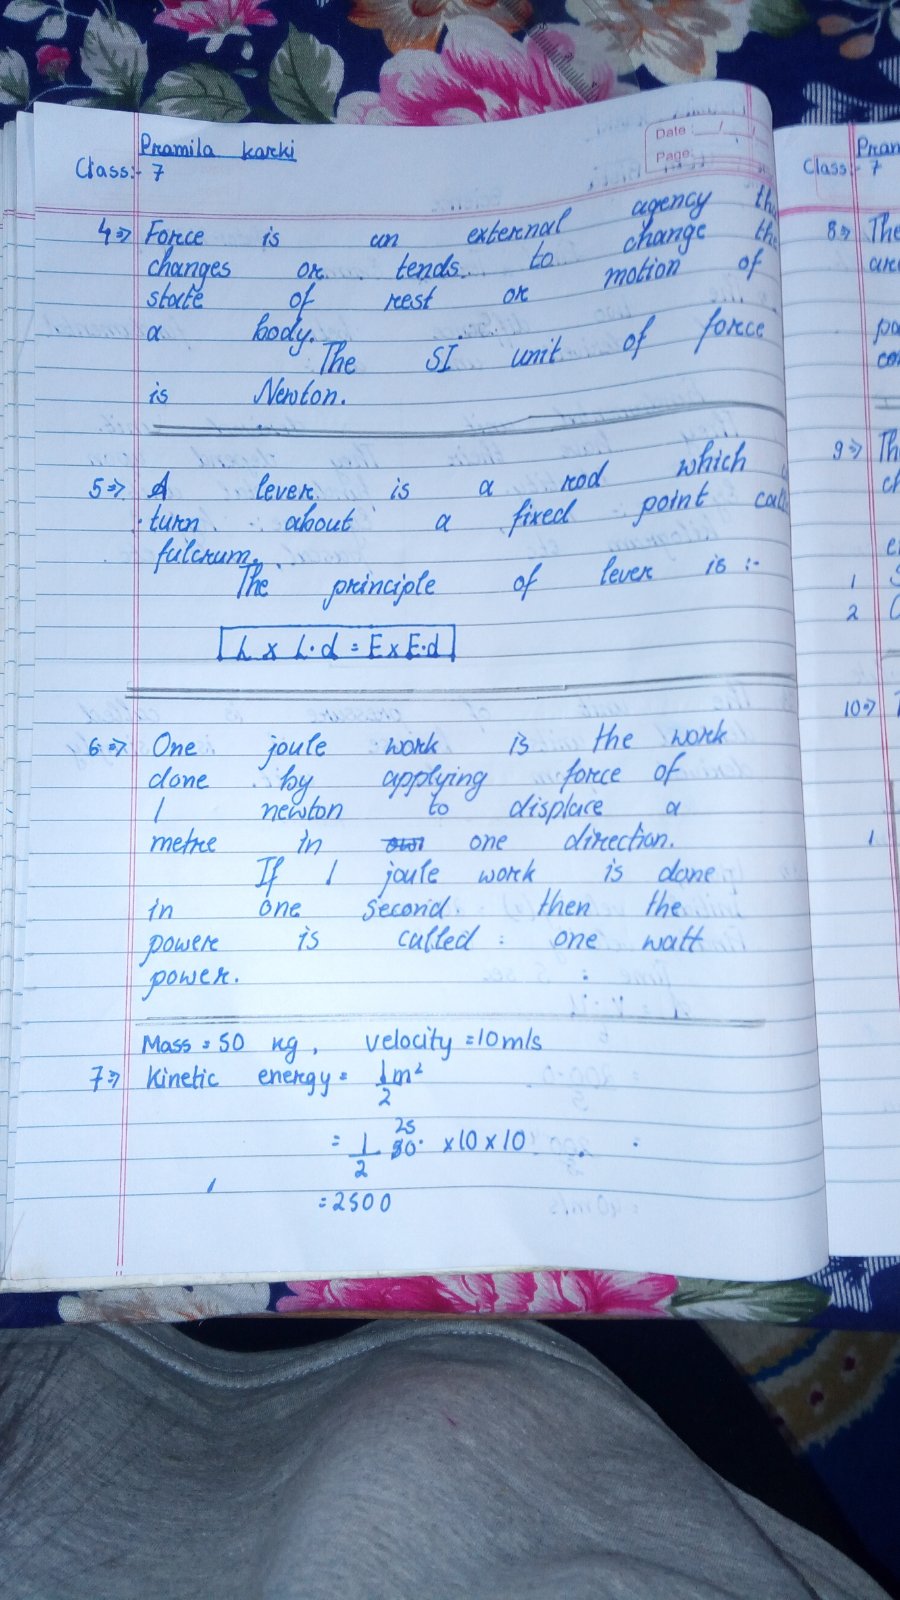 Pramila karki
Class:- 7
Date : / /
Page:
4⇒ Force is an external agency
changes or tends to change the
state of rest or motion of
a body.
The SI unit of force
is Newton.
5⇒ A lever is a rod which
turn about a fixed point
fulcrum.
The principle of lever is :-
L x L.d = E x E.d
6⇒ One joule work is the work
done by applying force of
1 newton to displace a
metre in one direction.
If 1 joule work is done
in one second then the
power is called one watt
power.
Mass = 50 kg, velocity = 10m/s
7⇒ Kinetic energy = 1/2 m²
25
= 1/2 50 x 10 x 10
= 2500
Class:- 7
8⇒ The
9⇒
1
2
10⇒
1